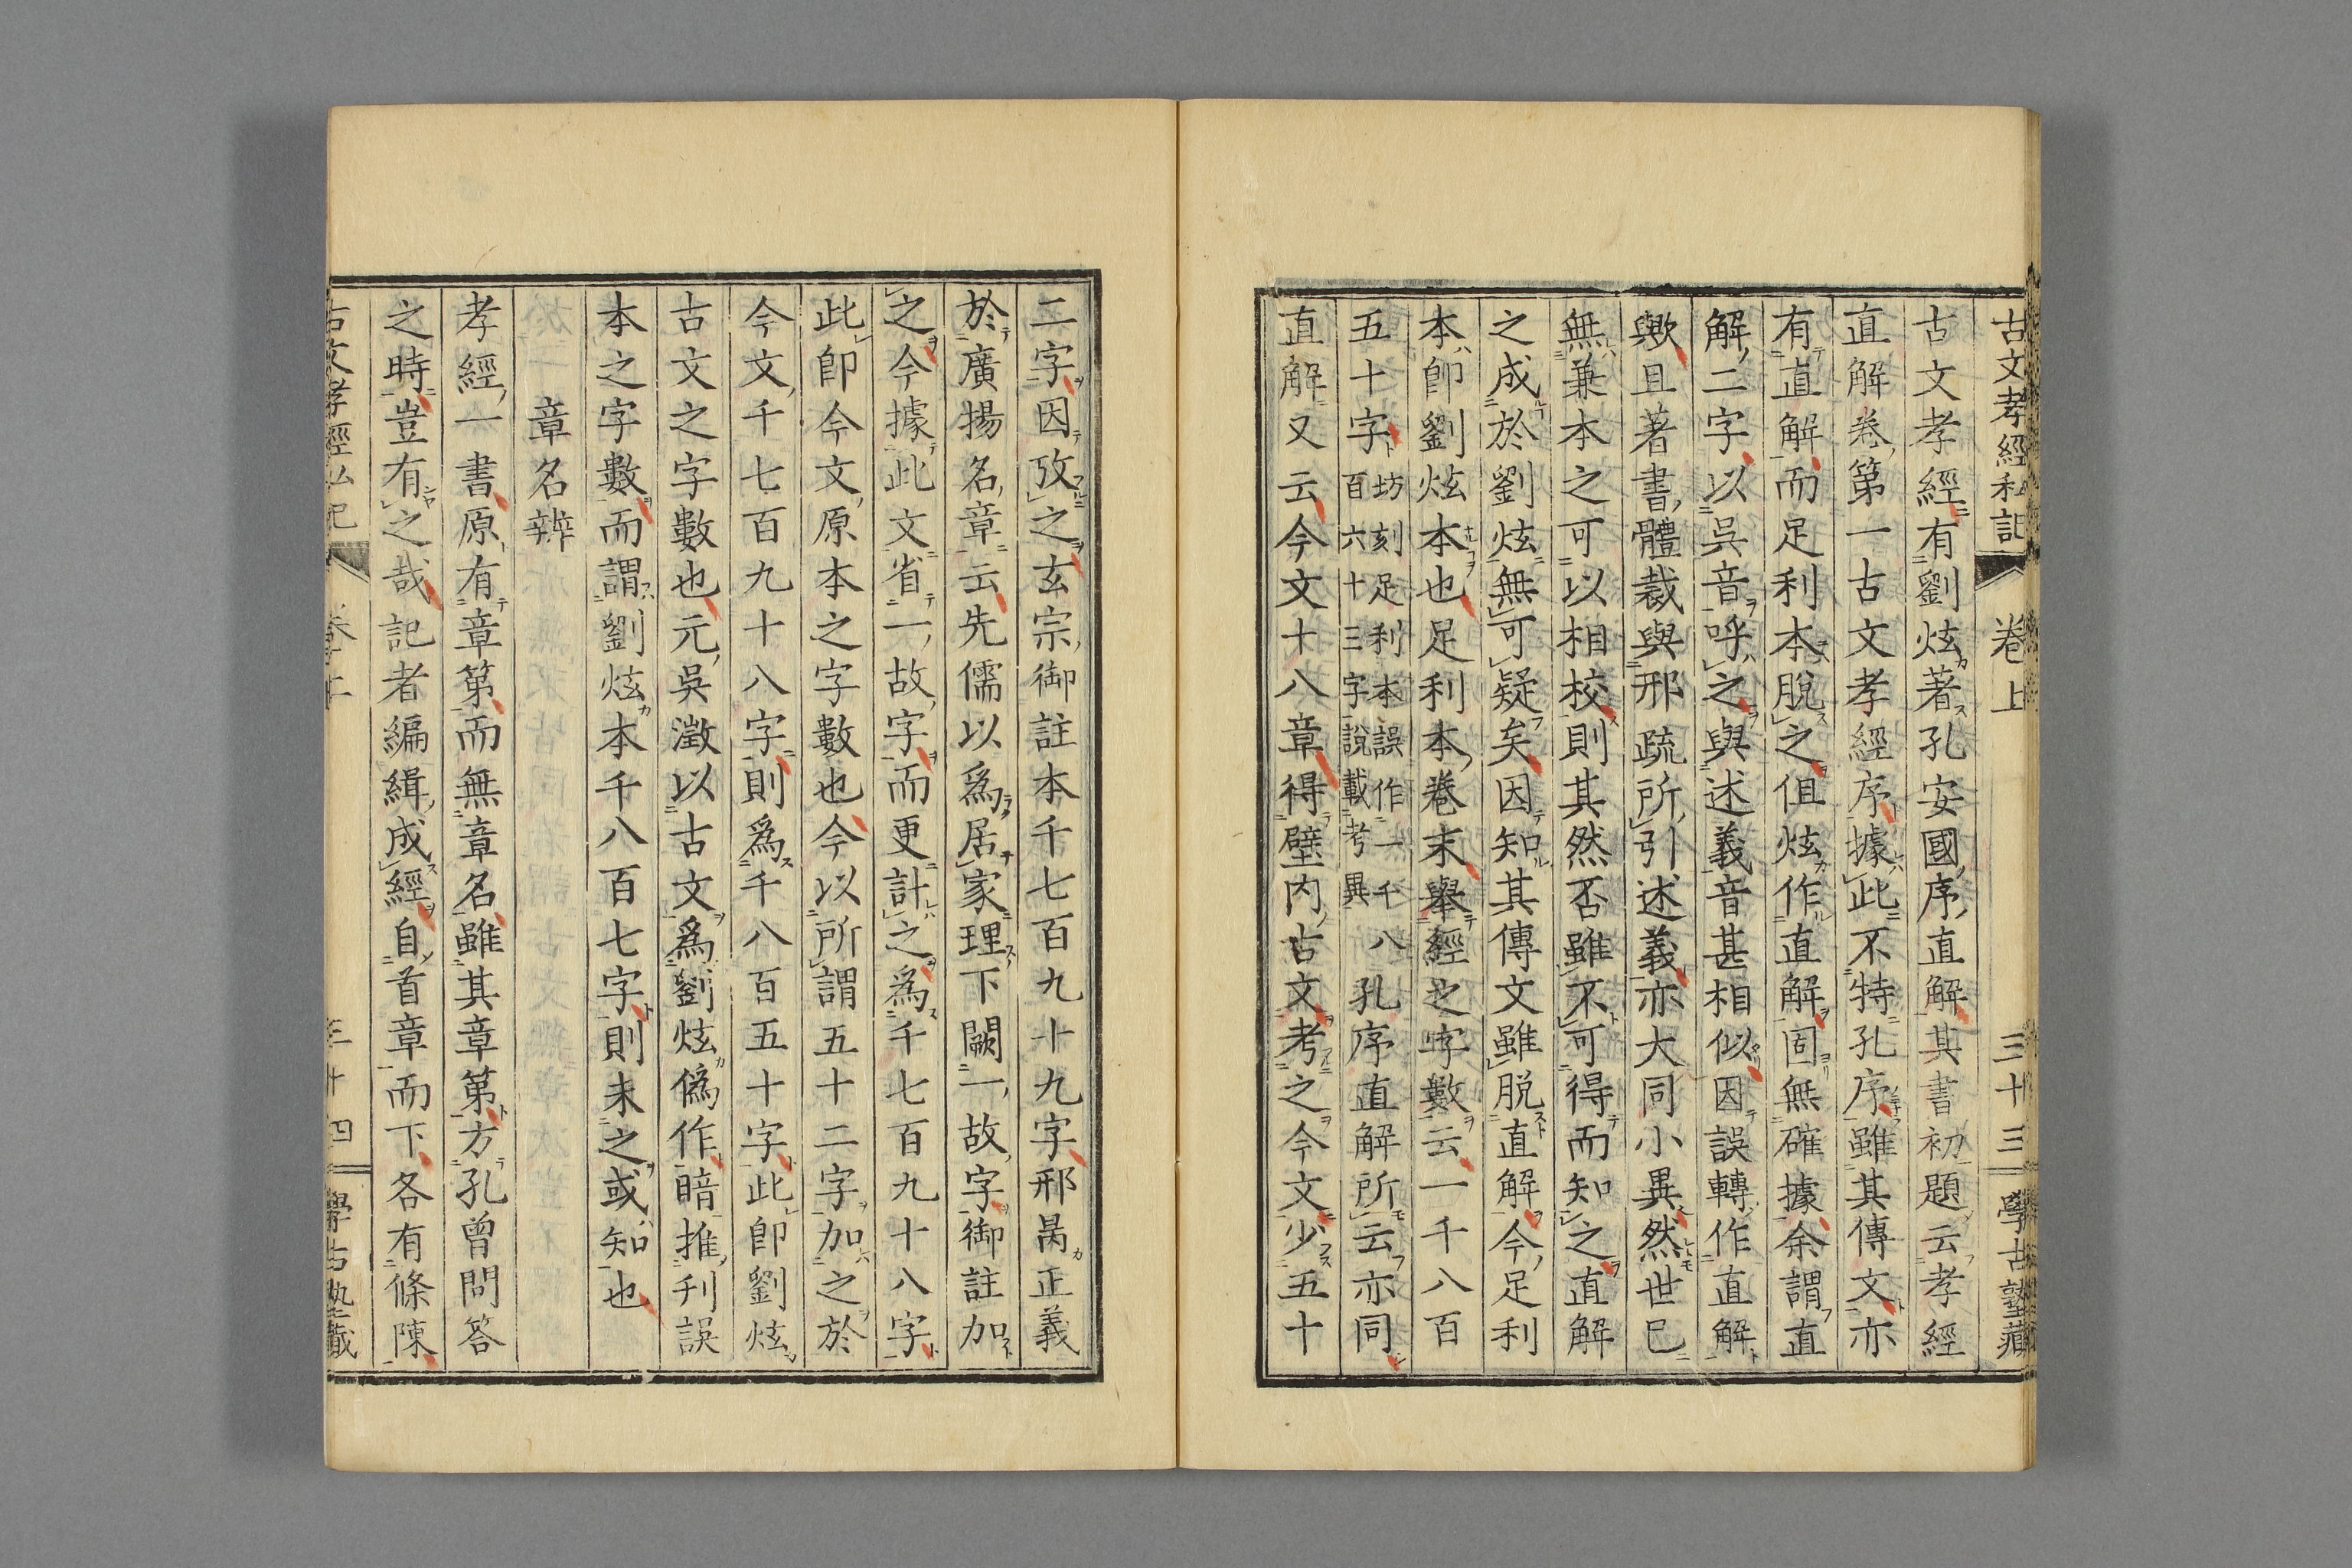 古文孝經私記 卷上 三十三 學古塾藏
古文孝經有劉炫著孔安國序直解其書初題云孝經
直解卷第一古文孝經序據此不特孔序雖其傳文亦
有直解而足利本脫之但炫作直解固無確據余謂直
解二字以吳音呼之與述義音甚相似因誤轉作直解
歟且著書體裁與邢疏所引述義亦大同小異然世已
無兼本之可以相校則其然否雖不可得而知之直解
之成於劉炫無可疑矣因知其傳文雖脫直解今足利
本卽劉炫本也足利本卷末舉經之字數云一千八百
五十字坊刻足利本誤作一千八百六十三字說載考異孔序直解所云亦同
直解又云今文十八章得壁內古文考之今文少五十
二字因攷之玄宗御註本千七百九十九字邢昺正義
於廣揚名章云先儒以爲居家理下闕一故字御註加
之今據此文省一故字而更計之爲千七百九十八字
此卽今文原本之字數也今以所謂五十二字加之於
今文千七百九十八字則爲千八百五十字此卽劉炫
古文之字數也元吳澂以古文爲劉炫僞作暗推刋誤
本之字數而謂劉炫本千八百七字則未之或知也
章名辨
孝經一書原有章第而無章名雖其章第方孔曾問答
之時豈有之哉記者編緝成經自首章而下各有條陳
古文孝經私記 卷上 三十四 學古塾藏